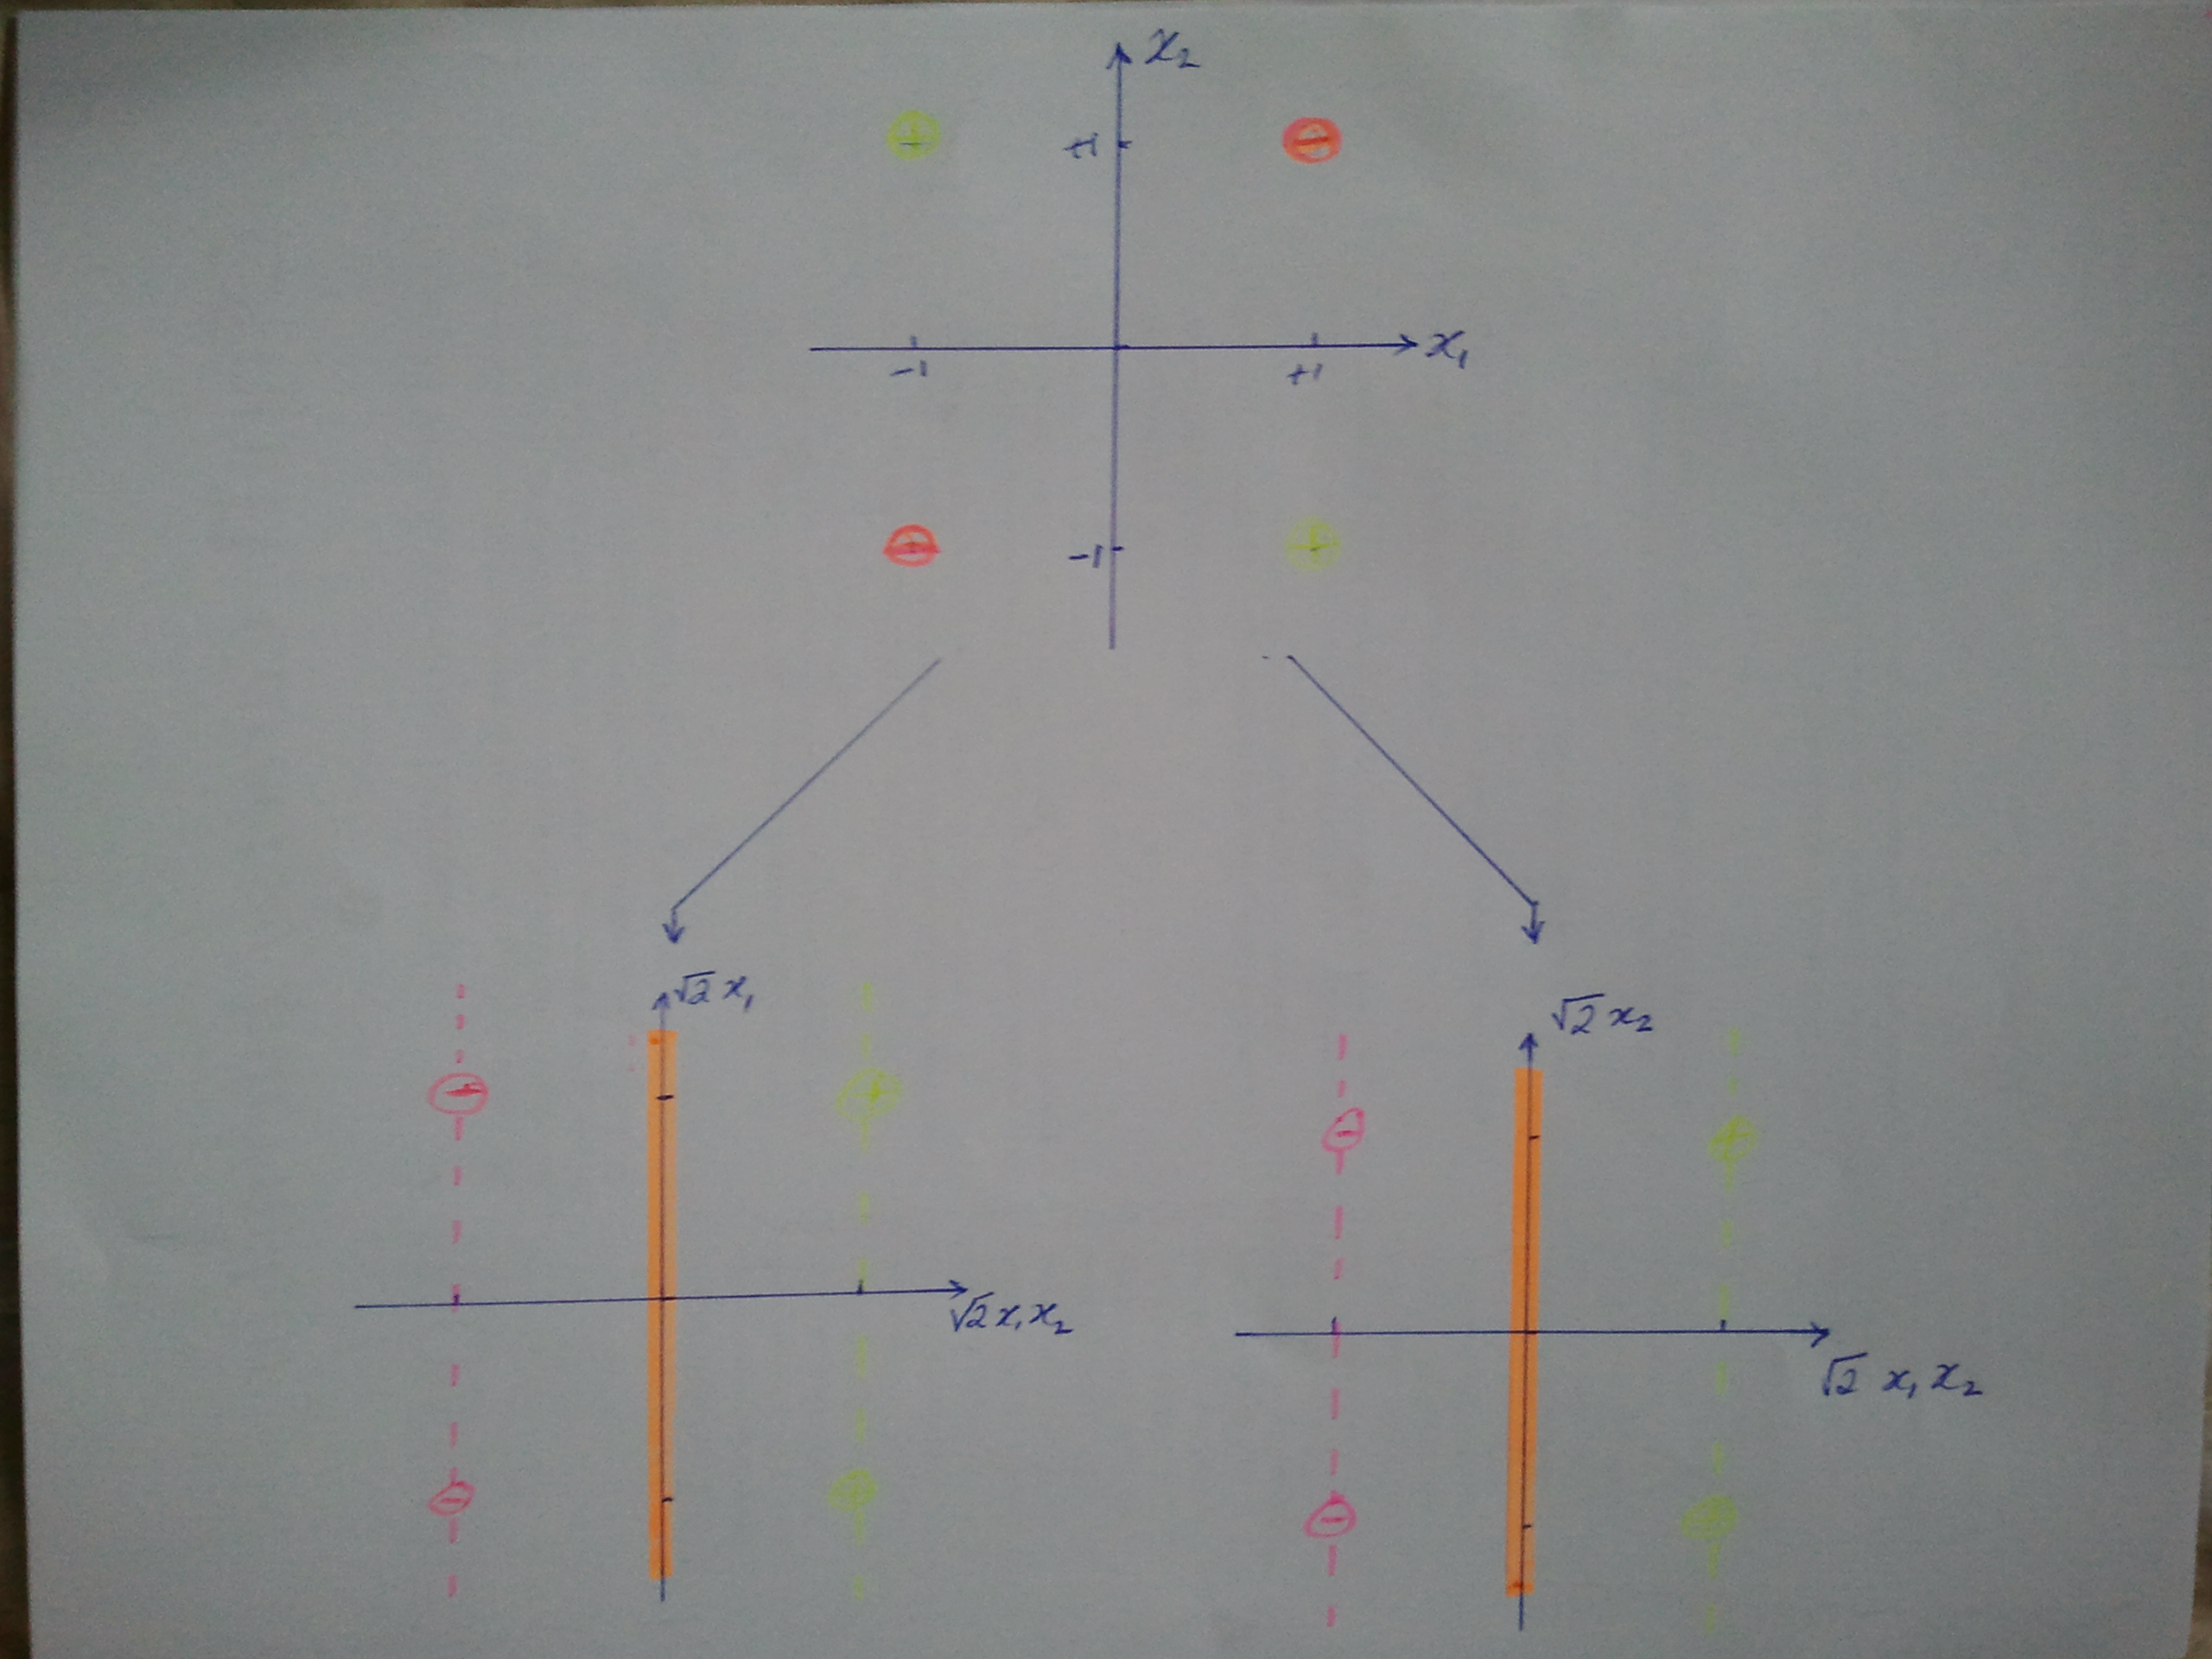 x₂
+ +1 −
−1 +1 x₁
− −1 +
√2 x₁
√2 x₂
− +
− +
√2 x₁ x₂
√2 x₁ x₂
− +
− +